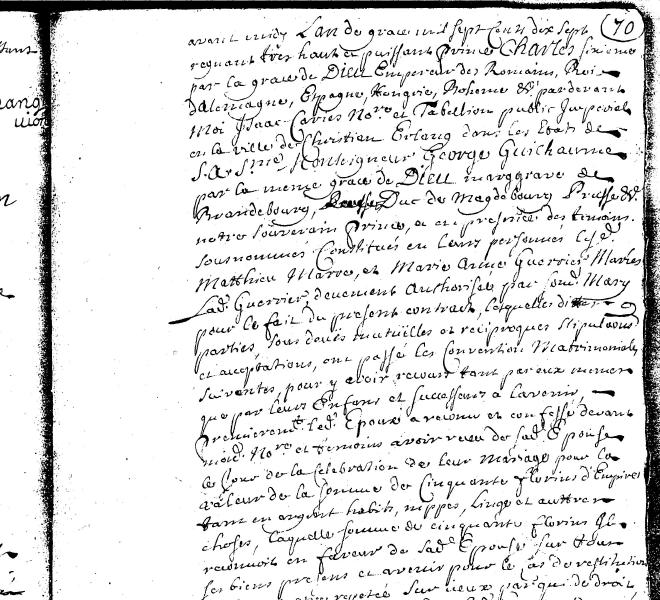 70
avant midy L'an de grace mil sept Cents dix sept
regnant très haut et puissant Prince Charles sixieme
par la grace de Dieu Empereur des Romains, Roi
dalemagne, Espagne, Hongrie, Boheme &c. par devant
Moi Isaac Carles Nore et Tabellion public Imperial
en la ville de Christien Erlang dans les Etats de
S. A. Sme Monseigneur George Guilhaume
par la meme grace de Dieu marggrave de
Brandebourg, Duc de Magdebourg Prusse &c.
notre souverain Prince, et en presence des temoins
sousnommés Constitués en leurs personnes
Matthieu Marre, et Marie Anne Guerrier Mariés
Lade Guerrier deuement Authorisée par sond Mary
pour le fait du present contract, lesquelles
parties, sous dues mutuëlles et reciproques stipulaons
et acceptations, ont passé les Convention Matrimoniales
suivantes, pour y avoir recours tant par eux memes
que par leurs Enfans et successeurs à lavenir,
Premieremt led. Epoux a reconu et confessé devant
moid. Nore et temoins avoir receu de sade Epouse
le Jour de la Celebration de leur Mariage pour la
valeur de la somme de Cinquante florins d'Empire
tant en argent habits, nippes, linge et auttres
choses, laquelle somme de cinquante florins Il
reconnoit en faveur de sade Epouse sur tous
ses biens presens et avenir pour le cas de restitution
repetée sur iceux par qui de droit,